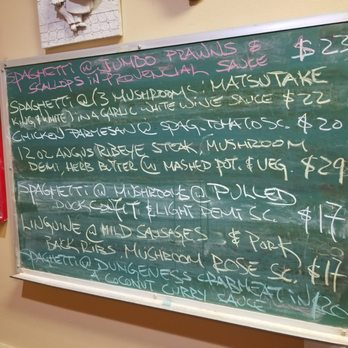 SPAGHETTI @ JUMBO PRAWNS & $23
SCALLOPS IN PROVENCIAL SAUCE
SPAGHETTI @ (3 MUSHROOMS: MATSUTAKE
KING, & WHITE) IN A GARLIC WHITE WINE SAUCE $22
CHICKEN PARMESAN @ SPAG. TOMATO SC. $20
12 OZ ANGUS RIBEYE STEAK, MUSHROOM
DEMI, HERB BUTTER (W MASHED POT. & VEG. $29
SPAGHETTI @ MUSHROOMS @ PULLED
DUCK CONFIT & LIGHT DEMI SC. $17
LINGUINE @ MILD SAUSAGES & PORK
BACK RIBS MUSHROOM ROSE SC. $17
SPAGHETTI @ DUNGENESS CRABMEAT IN
A COCONUT CURRY SAUCE $20